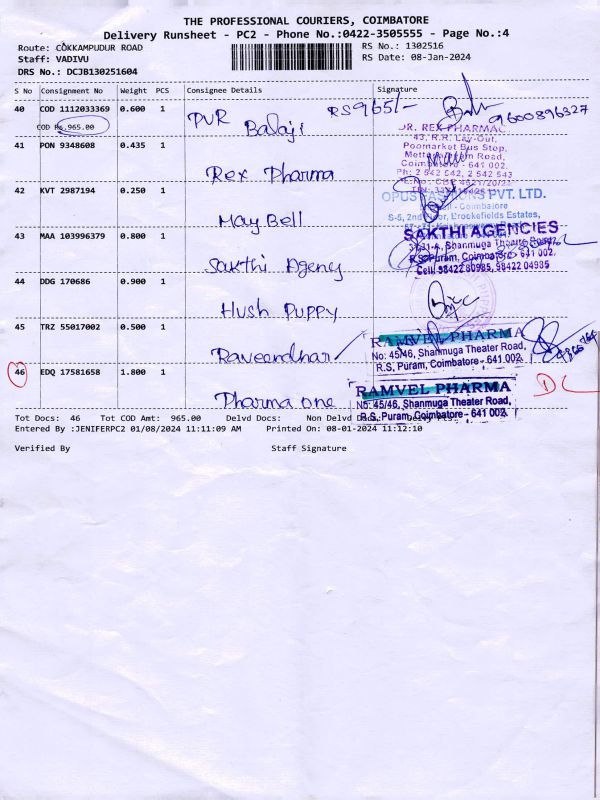 THE PROFESSIONAL COURIERS, COIMBATORE
Delivery Runsheet - PC2 - Phone No.:0422-3505555 - Page No.:4
Route: COKKAMPUDUR ROAD
RS No.: 1302516
Staff: VADIVU
RS Date: 08-Jan-2024
DRS No.: DCJB130251604
S No Consignment No Weight PCS Consignee Details Signature
40 COD 1112033369 0.600 1 PVR Balaji RS965/- 9600896327
COD Rs.965.00
DR. REX PHARMAC
43, R.R. Lay-Out,
Poomarket Bus Stop,
41 PON 9348608 0.435 1 Rex Pharma
Road,
Ph: 2 542 542, 2 542 543
42 KVT 2987194 0.250 1 May Bell
OPUS FASHIONS PVT. LTD.
Coimbatore
S-5, 2nd Floor, Brookefields Estates,
43 MAA 103996379 0.800 1 Sakthi Agency
SAKTHI AGENCIES
Shanmuga Theatre Road,
R.S. Puram, Coimbatore - 641 002.
Cell: 98422 80985, 98422 04985
44 DDG 170686 0.900 1 Hush Puppy
45 TRZ 55017002 0.500 1 Raveendhar
RAMVEL PHARMA
No: 45/46, Shanmuga Theater Road,
R.S, Puram, Coimbatore - 641 002.
46 EDQ 17581658 1.800 1 Pharma one DC
RAMVEL PHARMA
No: 45/46, Shanmuga Theater Road,
R.S, Puram, Coimbatore - 641 002.
Tot Docs: 46 Tot COD Amt: 965.00 Delvd Docs: Non Delvd Docs:
Entered By :JENIFERPC2 01/08/2024 11:11:09 AM Printed On: 08-01-2024 11:12:10
Verified By Staff Signature